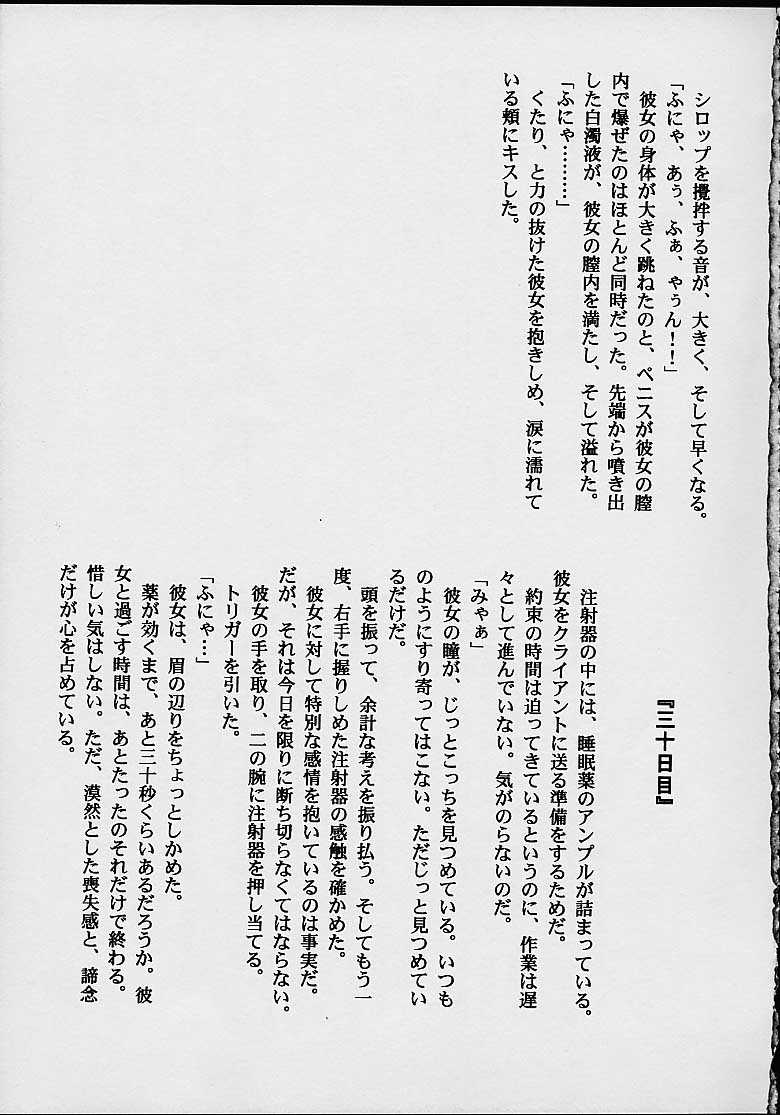 シロップを攪拌する音が、大きく、そして早くなる。
「ふにゃ、あぅ、ふぁ、ゃぅん！！」
彼女の身体が大きく跳ねたのと、ペニスが彼女の膣
内で爆ぜたのはほとんど同時だった。先端から噴き出
した白濁液が、彼女の膣内を満たし、そして溢れた。
「ふにゃ………」
くたり、と力の抜けた彼女を抱きしめ、涙に濡れて
いる頬にキスした。
『三十日目』
注射器の中には、睡眠薬のアンプルが詰まっている。
彼女をクライアントに送る準備をするためだ。
約束の時間は迫ってきているというのに、作業は遅
々として進んでいない。気がのらないのだ。
「みゃぁ」
彼女の瞳が、じっとこっちを見つめている。いつも
のようにすり寄ってはこない。ただじっと見つめてい
るだけだ。
頭を振って、余計な考えを振り払う。そしてもう一
度、右手に握りしめた注射器の感触を確かめた。
彼女に対して特別な感情を抱いているのは事実だ。
だが、それは今日を限りに断ち切らなくてはならない。
彼女の手を取り、二の腕に注射器を押し当てる。
トリガーを引いた。
「ふにゃ…」
彼女は、眉の辺りをちょっとしかめた。
薬が効くまで、あと三十秒くらいあるだろうか。彼
女と過ごす時間は、あとたったのそれだけで終わる。
惜しい気はしない。ただ、漠然とした喪失感と、諦念
だけが心を占めている。